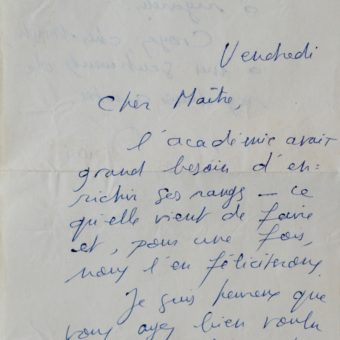 Vendredi
Cher Maître,
l'académie avait
grand besoin d'en-
richir ses rangs — ce
qu'elle vient de faire
et, pour une fois,
nous l'en féliciterons.
Je suis heureux que
vous ayez bien voulu